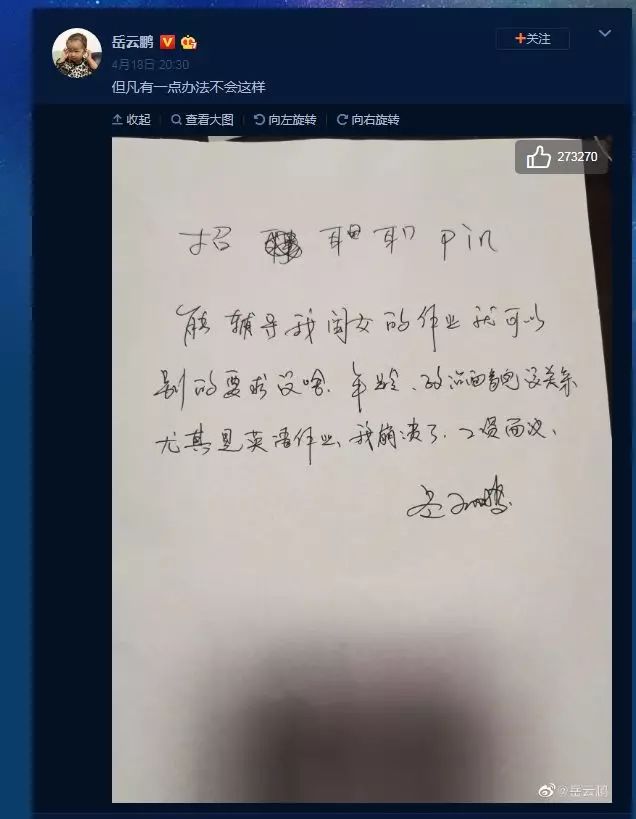 岳云鹏
+关注
4月18日 20:30
但凡有一点办法不会这样
收起 查看大图 向左旋转 向右旋转
273270
招 Pin
能辅导我闺女的作业就可以
别的要求没啥.年龄、政治面貌没关系
尤其是英语作业、我崩溃了.工资面议、
岳云鹏
@岳云鹏